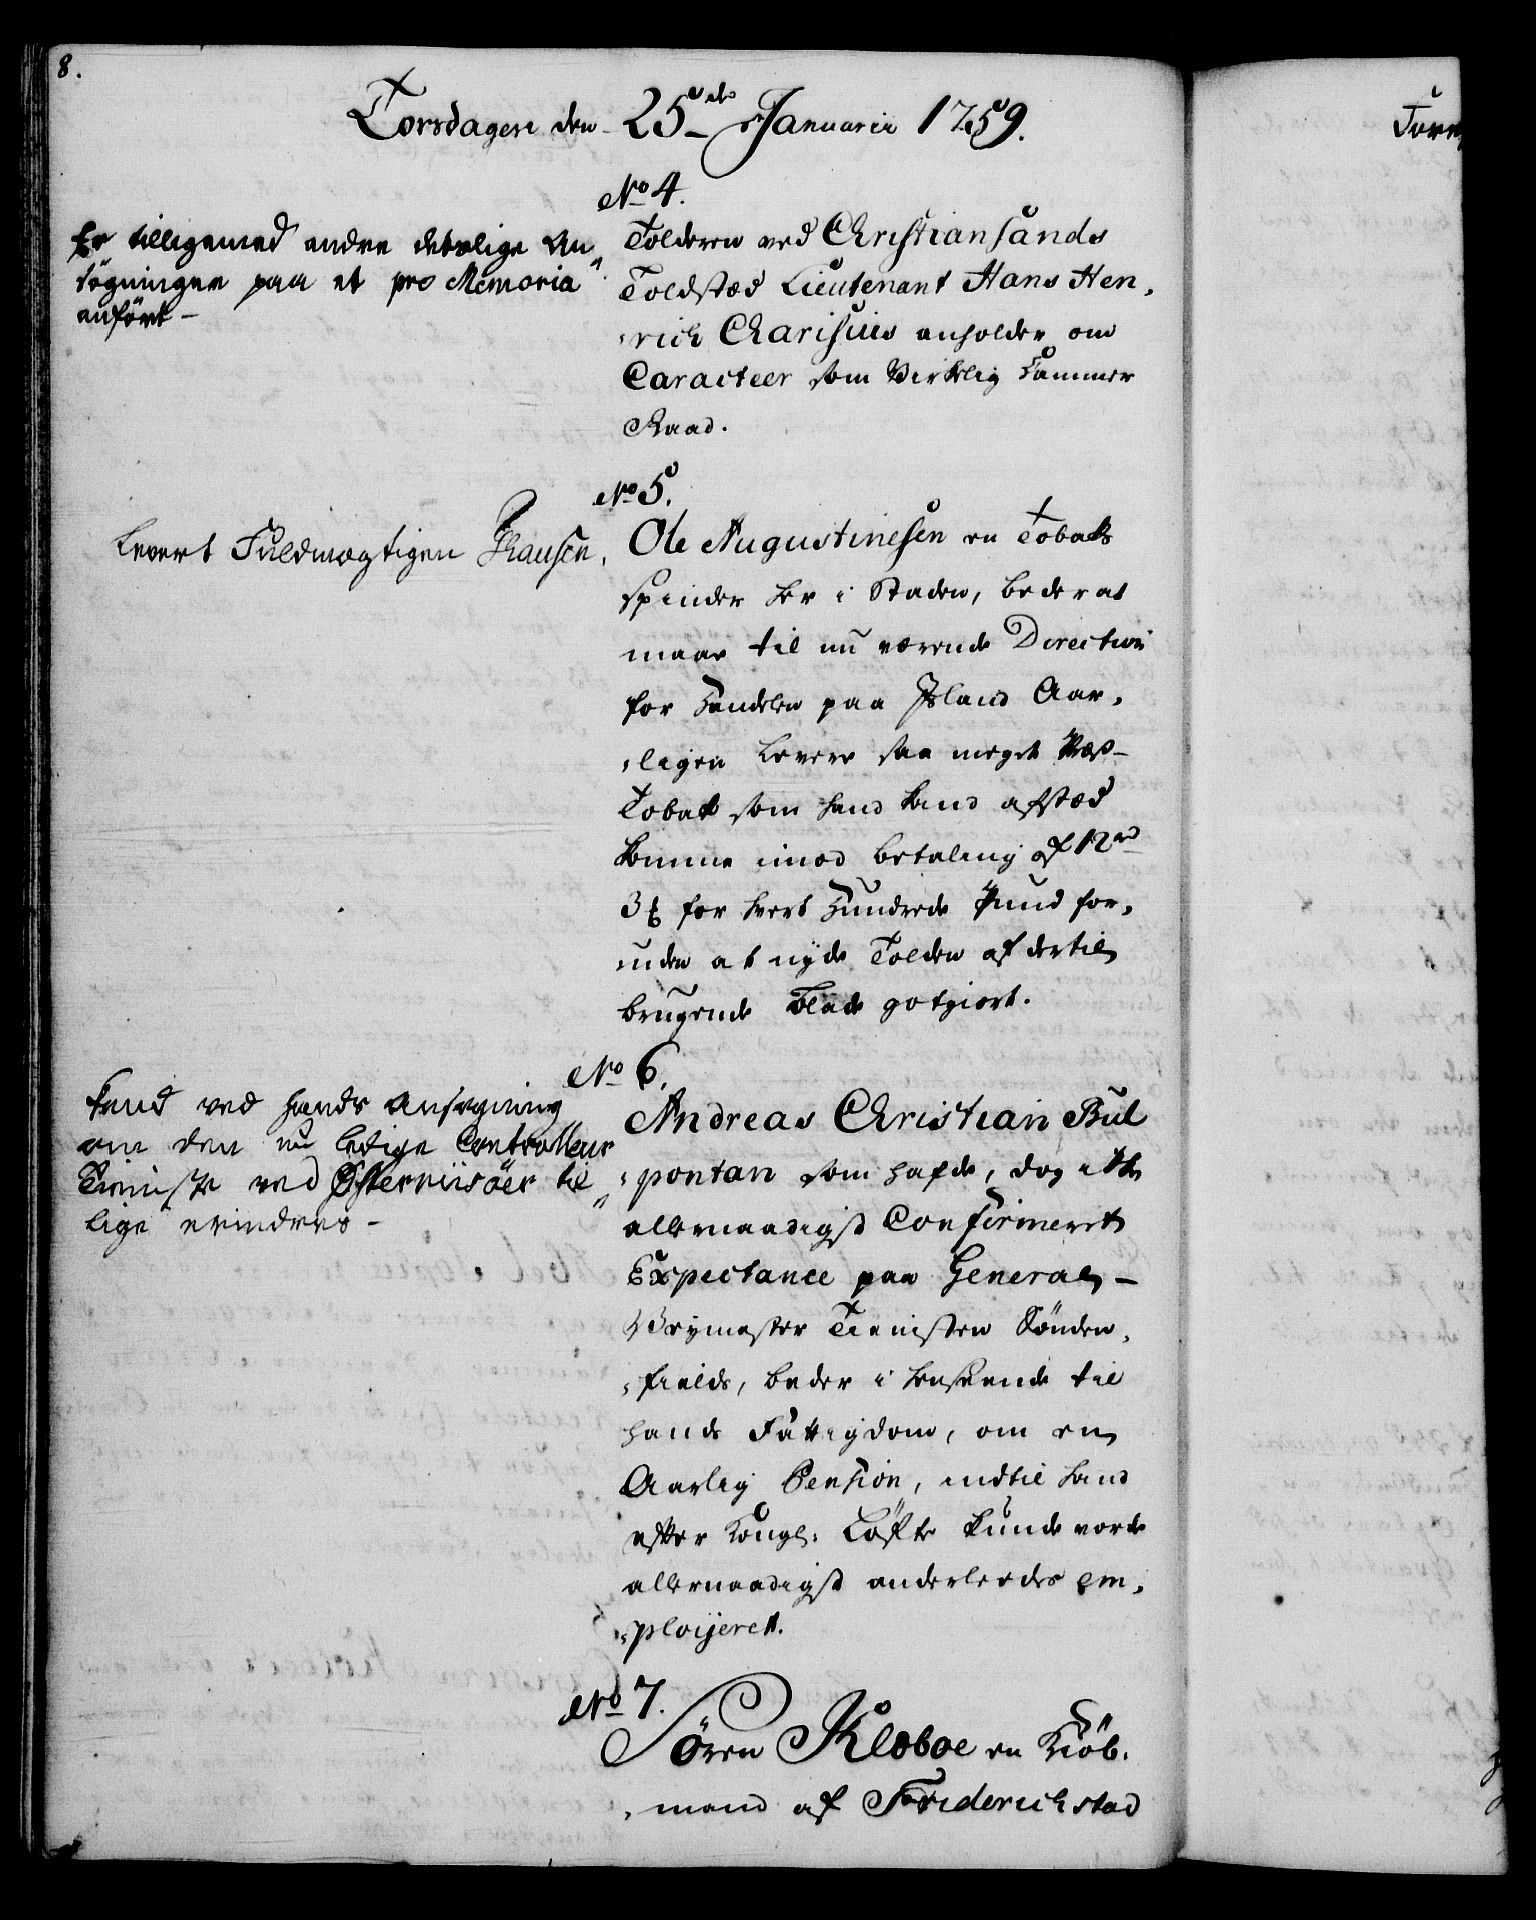 8.
Torsdagen den 25de Januarii 1759.
No 4.
Er tilligemed andre deslige An„
søgninger paa et pro Memoria
anført –
Tolderen ved Christiansands
Toldsted Lieutenant Hans Hen,
,rich Charisius anholder om
Caracteer som Virkelig Cammer
Raad.
No 5.
Levert Fuldmægtigen Thausen.
Ole Augustinesen en Tobaks
spinder her i Staden, beder at
maae til nu værende Direction
for Handelen paa Island Aar,
,ligen levere saa meget Præs-
Tobak som hand kand afsted
komme imod betaling af 12 rd
3 ß for hvert Hundrede Pund for,
uden at nyde Tolden af dertil
brugende Blade gotgiort.
No 6.
kand ved hands Ansøgning
om den nu ledige Controlleur
Tieniste ved Østerriisøer til„
lige erindres –
Andreas Christian Bul
,pontan som hafde, dog ikke
allernaadigst Confirmeret
Expectance paa General-
Veymester Tienisten Sønden,
,fields, beder i henseende til
hands Fattigdom, om en
Aarlig Pension, indtil hand
efter Kongl. Løfte kunde vorde
allernaadigst anderleedes em,
,ployeret.
No 7.
Søren Kleboe en Kiøb,
,mand af Friderichstad